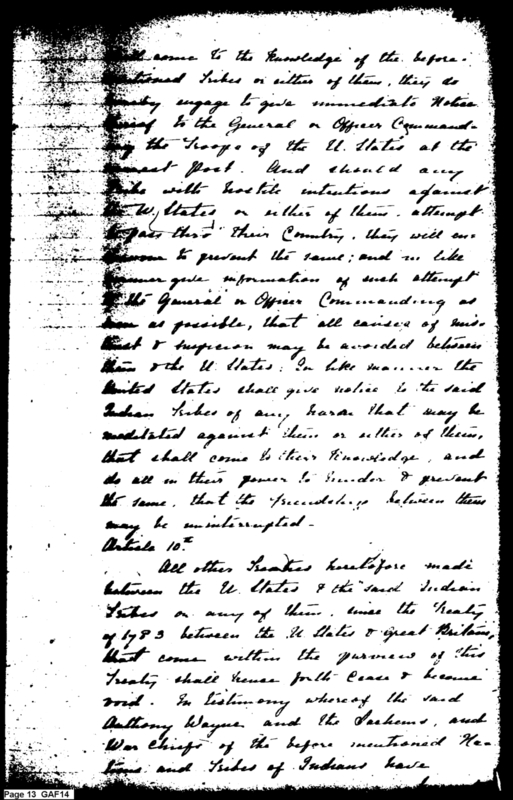 shall come to the Knowledge of the before-
mentioned Tribes or either of them, they do
hereby engage to give immediate Notice
thereof to the General or Officer Command-
ing the Troops of the U. States at the
nearest Post. And should any
Tribe with hostile intentions against
the U. States or either of them, attempt
to pass thro' their Country, they will en-
deavour to prevent the same; and in like
manner give information of such attempt
to the General or Officer Commanding as
soon as possible, that all causes of mis-
trust & suspicion may be avoided between
them & the U States; In like manner the
United States shall give notice to the said
Indian Tribes of any harm that may be
meditated against them or either of them,
that shall come to their Knowledge, and
do all in their power to hinder & prevent
the same, that the friendship between them
may be uninterrupted -
Article 10.th
All other Treaties heretofore made
between the U. States & the said Indian
Tribes or any of them, since the Treaty
of 1783 between the U States & Great Britain,
that come within the purview of this
Treaty shall hence forth Cease & become
void. In testimony whereof the said
Anthony Wayne and the Sachems, and
War Chiefs of the before mentioned Na-
tions and Tribes of Indians have
Page 13 GAF14